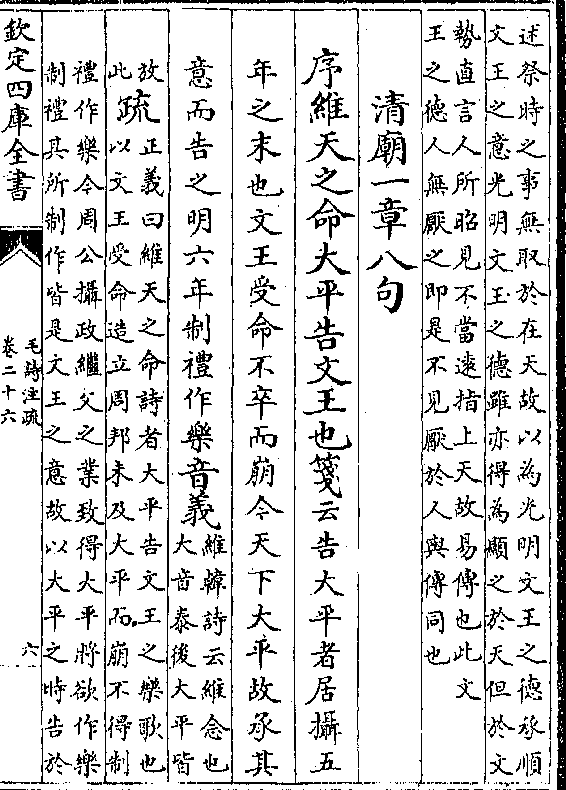 述祭時之事無取於在天故以為光明文王之德承順
文王之意光明文王之德雖亦得為顯之於天但於文
勢直言人所昭見不當遠指上天故易傳也此文
王之德人無厭之即是不見厭於人與傳同也
清廟一章八句
序維天之命大平告文王也箋云告大平者居攝五
年之末也文王受命不卒而崩今天下大平故承其
意而告之明六年制禮作樂音義
維韓詩云維念也
大音泰後大平皆
放
此
疏
正義曰維天之命詩者大平告文王之樂歌也
以文王受命造立周邦未及大平而崩不得制
禮作樂今周公攝政繼父之業致得大平將欲作樂
制禮其所制作皆是文王之意故以大平之時告於
欽定四庫全書
毛詩注疏
卷二十六
六